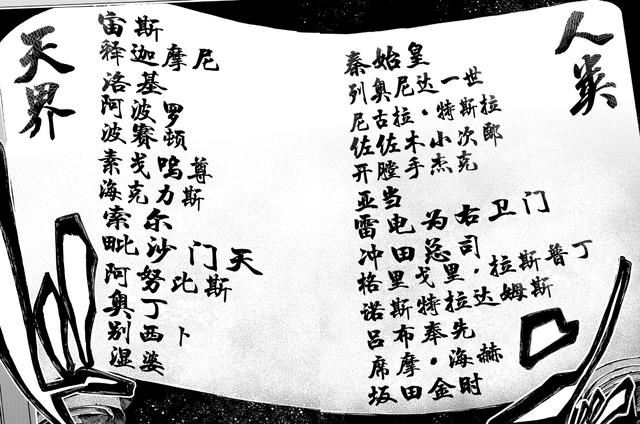 天界
宙斯
释迦摩尼
洛基
阿波罗
波赛顿
素戈呜尊
海克力斯
索尔
毗沙门天
阿努比斯
奥丁
别西卜
湿婆
人类
秦始皇
列奥尼达一世
尼古拉·特斯拉
佐佐木小次郎
开膛手杰克
亚当
雷电为右卫门
冲田总司
格里戈里·拉斯普丁
诺斯特拉达姆斯
吕布奉先
席摩·海赫
坂田金时